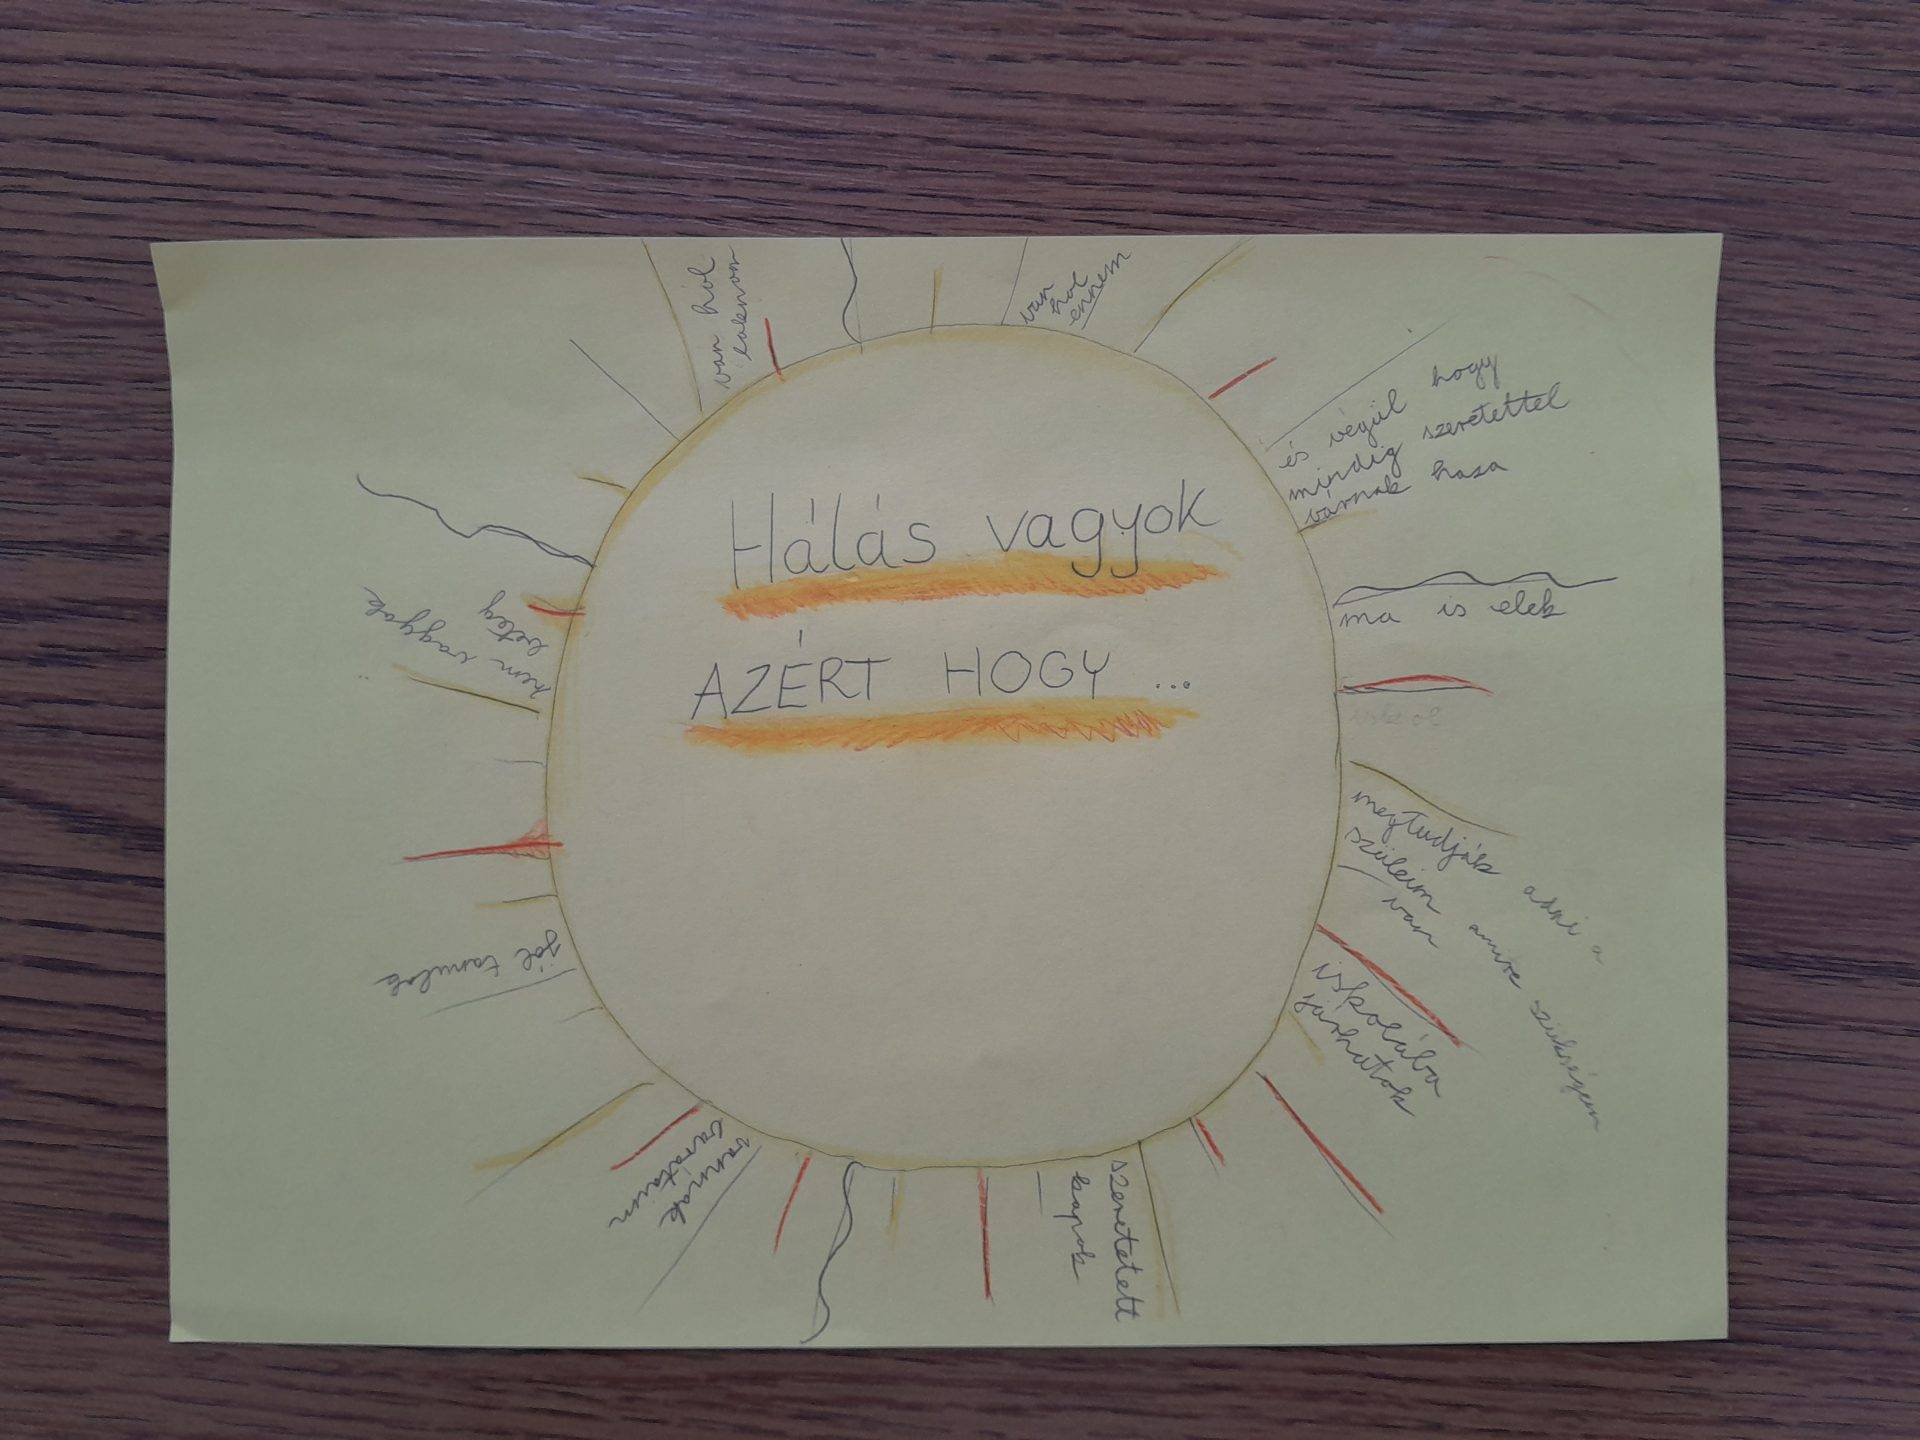 Hálás vagyok
AZÉRT HOGY ...
ma is elek
megtudják adni a
szüleim amire szükségem
van
iskolába
járhatok
szeretetett
kapok
vannak
barátaim
jól tanulok
nem vagyok
beteg
van hol
laknom
van
hol
ennem
és végül hogy
mindig szeretettel
várnak haza